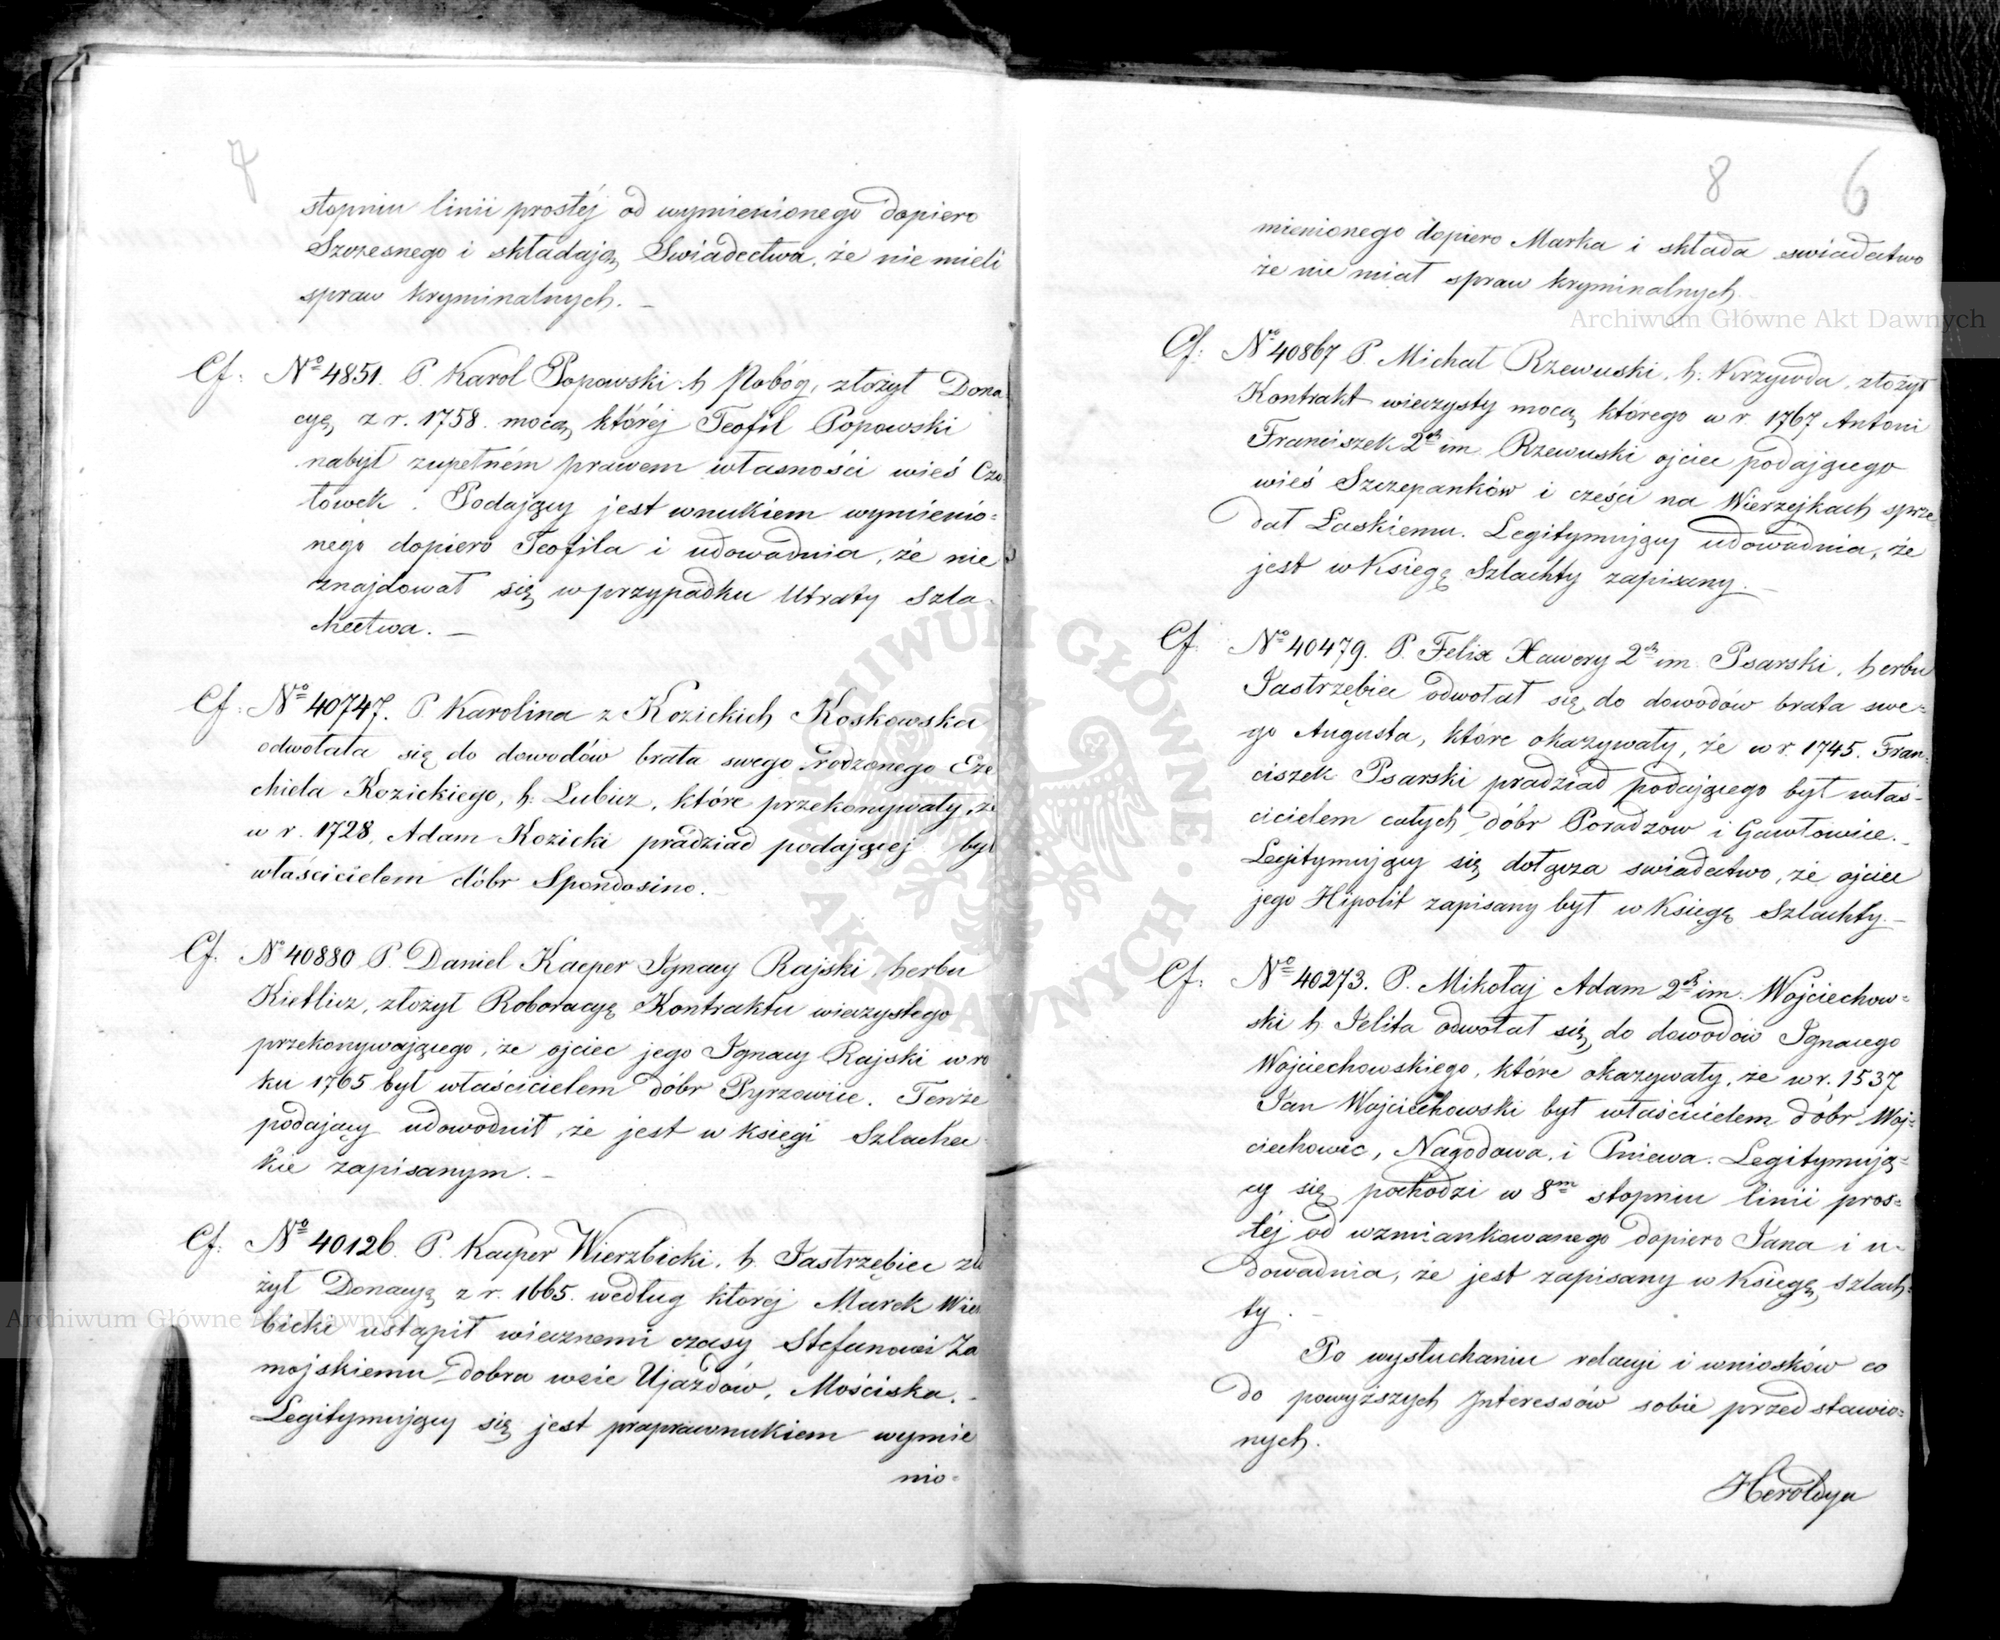 7
stopniu linii prostéj od wymienionego dopiero
Szczesnego i składają Swiadectwa, że nie mieli
spraw kryminalnych. –
Cf: Nº 4851. P. Karol Popowski h Pobóg, złożył Dona
cyą z r. 1758. mocą któréj Teofil Popowski
nabył zupełném prawem własności wieś Czo
łówek. Podający jest wnukiem wymienio=
nego dopiero Teofila i udowadnia, że nie
znajdował się w przypadku Utraty Szla-
chectwa. –
Cf: Nº 40747. P. Karolina z Kozickich Koskowska
odwołała się do dowodów brata swego rodzonego Eze
chiela Kozickiego, h: Lubicz, które przekonywały, że
w r. 1728, Adam Kozicki pradziad podającej był
właścicielem dóbr Spondosino. –
Cf. Nº 40880 P. Daniel Kacper Ignacy Rajski, herbu
Kietlicz, złożył Roboracyę Kontraktu wieczystego
przekonywającego, że ojciec jego Ignacy Rajski w ro
ku 1765 był właścicielem dóbr Pyrzowice. Tenże
podający udowodnił, że jest w księgi Szlachec
kie zapisanym. –
Cf. Nº 40126. P. Kacper Wierzbicki, h. Jastrzębiec zło
żył Donacyą z r. 1665. według ktorej Marek Wierz
bicki ustąpił wiecznemi czasy Stefanowi Za
mojskiemu dobra wsie Ujazdów, Mościska. –
Legitymujący się jest praprawnukiem wymie
nio-
8 6
mienionego dopiero Marka i składa swiadectwo
że nie miał spraw kryminalnych. –
Cf: Nº 40867 P Michał Rzewuski, h: Krzywda, złożył
Kontrakt wieczysty mocą którego w r. 1767 Antoni
Franciszek 2ch im. Rzewuski ojciec podającego
wieś Szczepanków i części na Wierzejkach sprze
dał Łaskiemu. Legitymujący udowadnia, że
jest w Księgę Szlachty zapisany. –
Cf. Nº 40479. P. Felix Xawery 2ch im. Psarski, herbu
Jastrzębiec odwołał się do dowodów brata swe=
go Augusta, które okazywały, że w r. 1745. Fran=
ciszek Psarski pradziad podającego był właś-
cicielem całych dóbr Poradzow i Gawłowice. –
Legitymujący się dołącza swiadectwo, że ojciec
jego Hipolit zapisany był w Księgę Szlachty. –
Cf: Nº 40273. P. Mikołaj Adam 2ch im. Wojciechow=
ski h Jelita odwołał się do dowodów Ignacego
Wojciechowskiego, które okazywały, że w r. 1537
Jan Wojciechowski był właścicielem dóbr Woj=
ciechowic, Nagodowa, i Pniewa. Legitymują=
cy się pochodzi w 8m stopniu linii pros=
téj od wzmiankowanego dopiero Jana i u-
dowadnia, że jest zapisany w Księgę Szlach=
ty. –
Po wysłuchaniu relacyi i wniosków co
do powyższych Interessów sobie przedstawio=
nych.
Heroldya
Archiwum Główne Akt Dawnych
Archiwum Główne Akt Dawnych
ARCHIWUM GŁÓWNE · AKT DAWNYCH ·